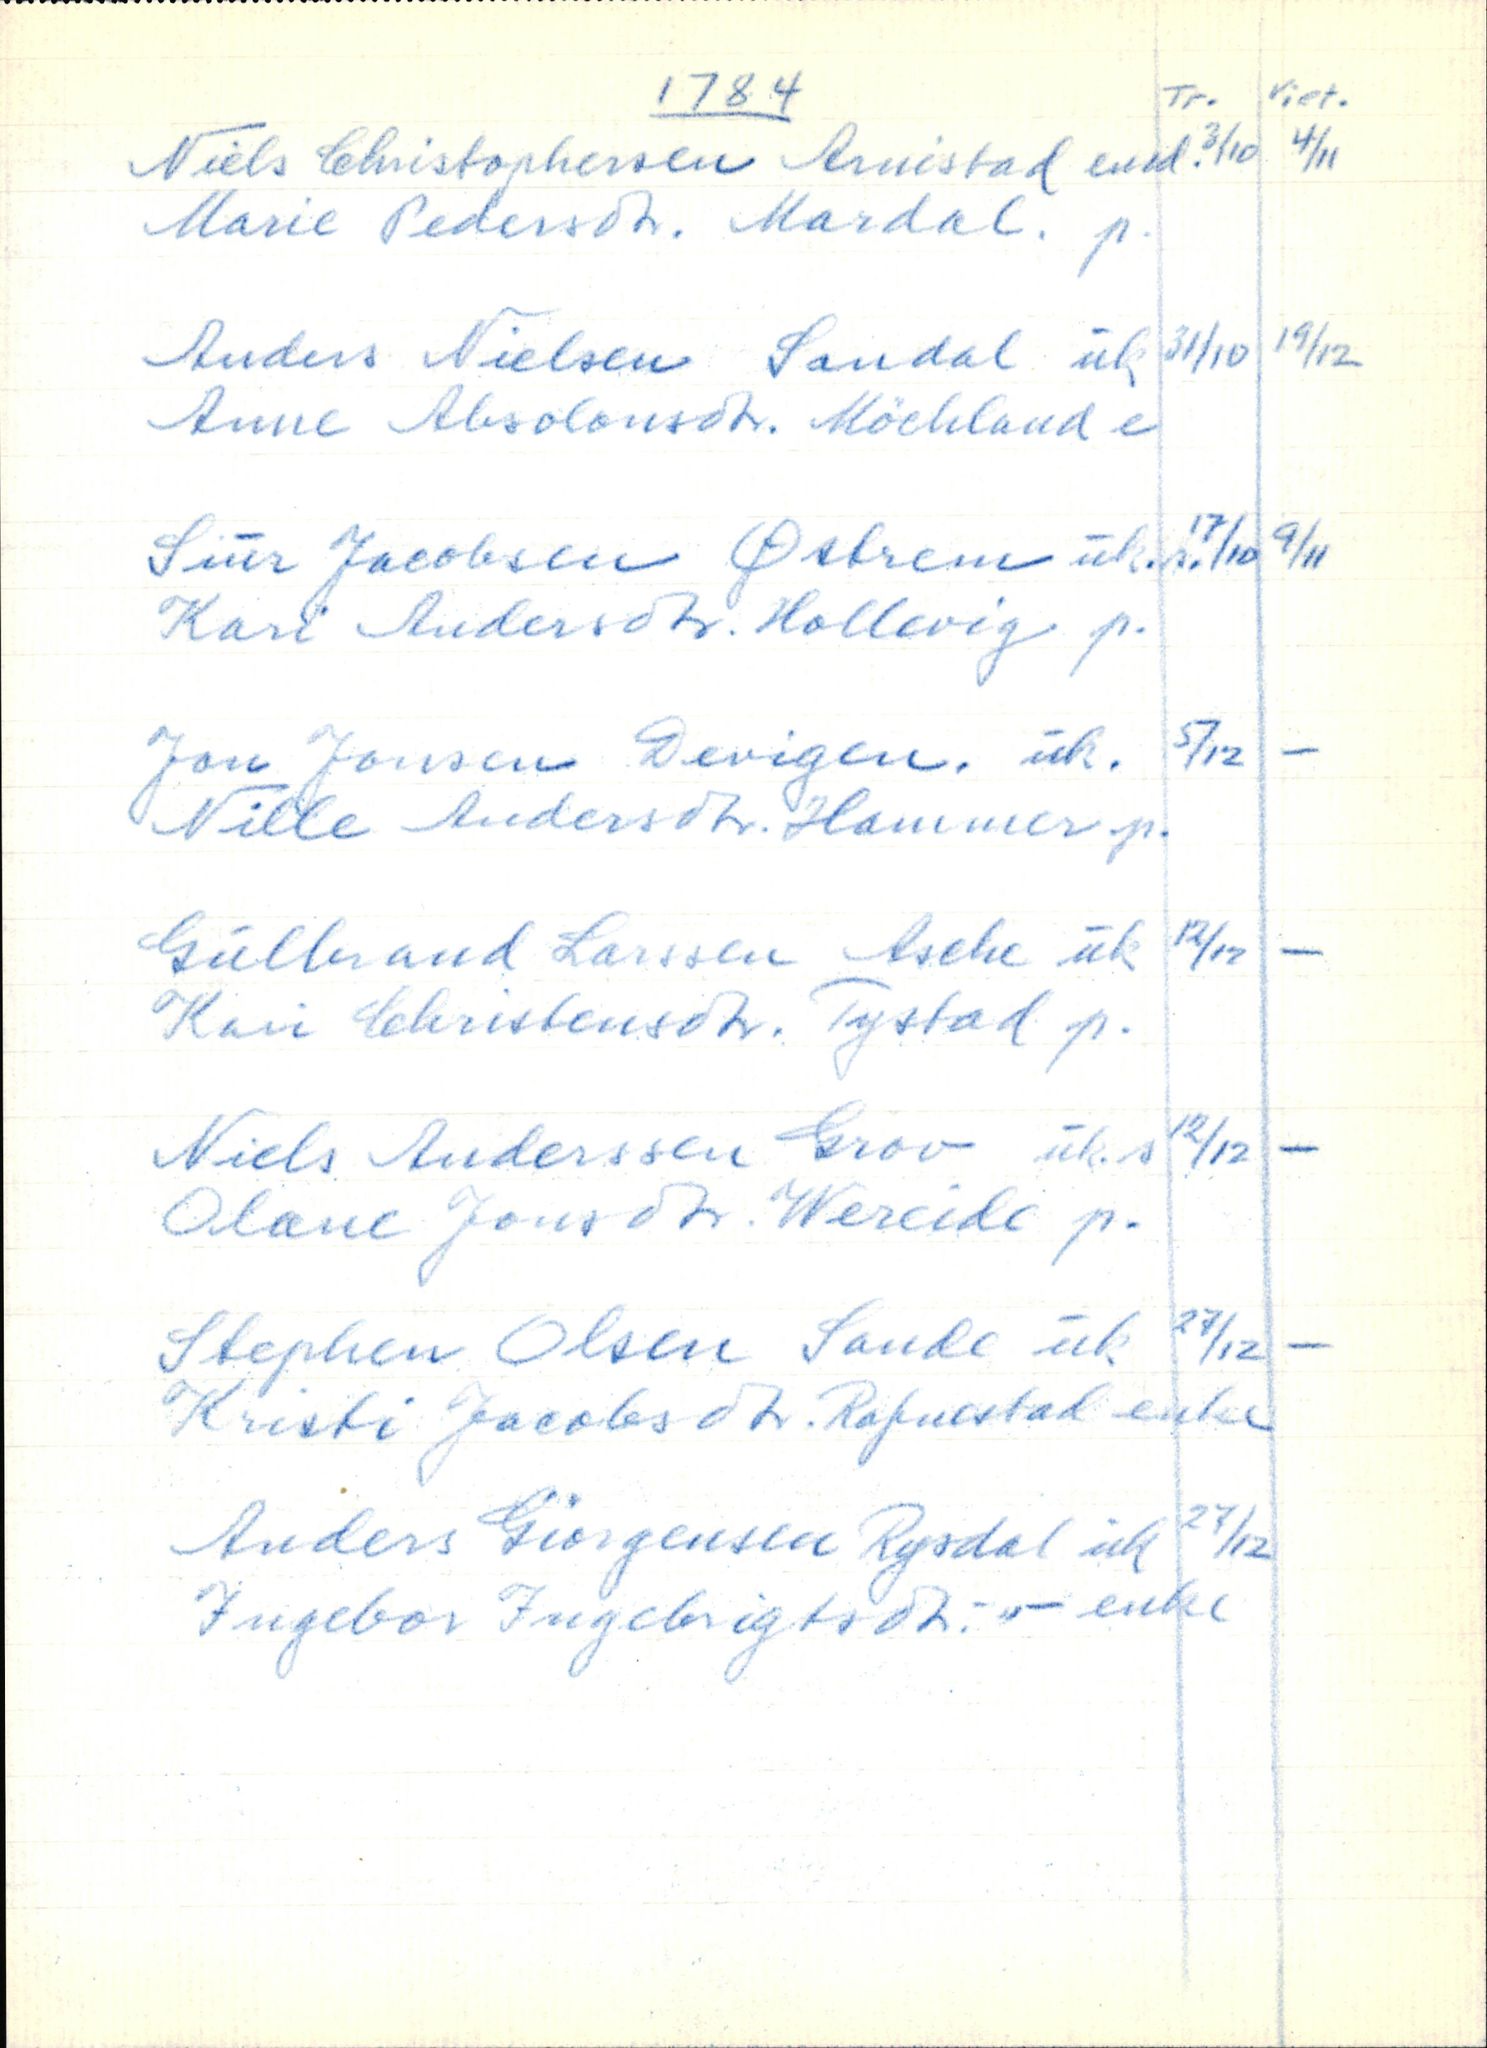 1784 Tr. Viet.
Niels Christophersen Arnistad enkd. 3/10 4/11
Marie Pedersdtr. Mardal. p.
Anders Nielsen Sandal uk 31/10 19/12
Anne Absolonsdtr. Möchland e
Siür Jacobsen Østrem ük. s. 17/10 9/11
Kari Andersdtr. Hollevig p.
Jon Jonsen Devigen. ük. 5/12 —
Nille Andersdtr. Hammer p.
Gülbrand Larssen Asche ük 12/12 —
Kari Christensdtr. Tystad p.
Niels Anderssen Grov ük. s 12/12 —
Olane Jonsdtr. Wereide p.
Stephen Olsen Sande ük 27/12 —
Kristi Jacobsdtr. Rafnestad enke
Anders Giörgensen Rysdal ük 27/12
Ingebor Ingebrigtsdtr. -"- enke